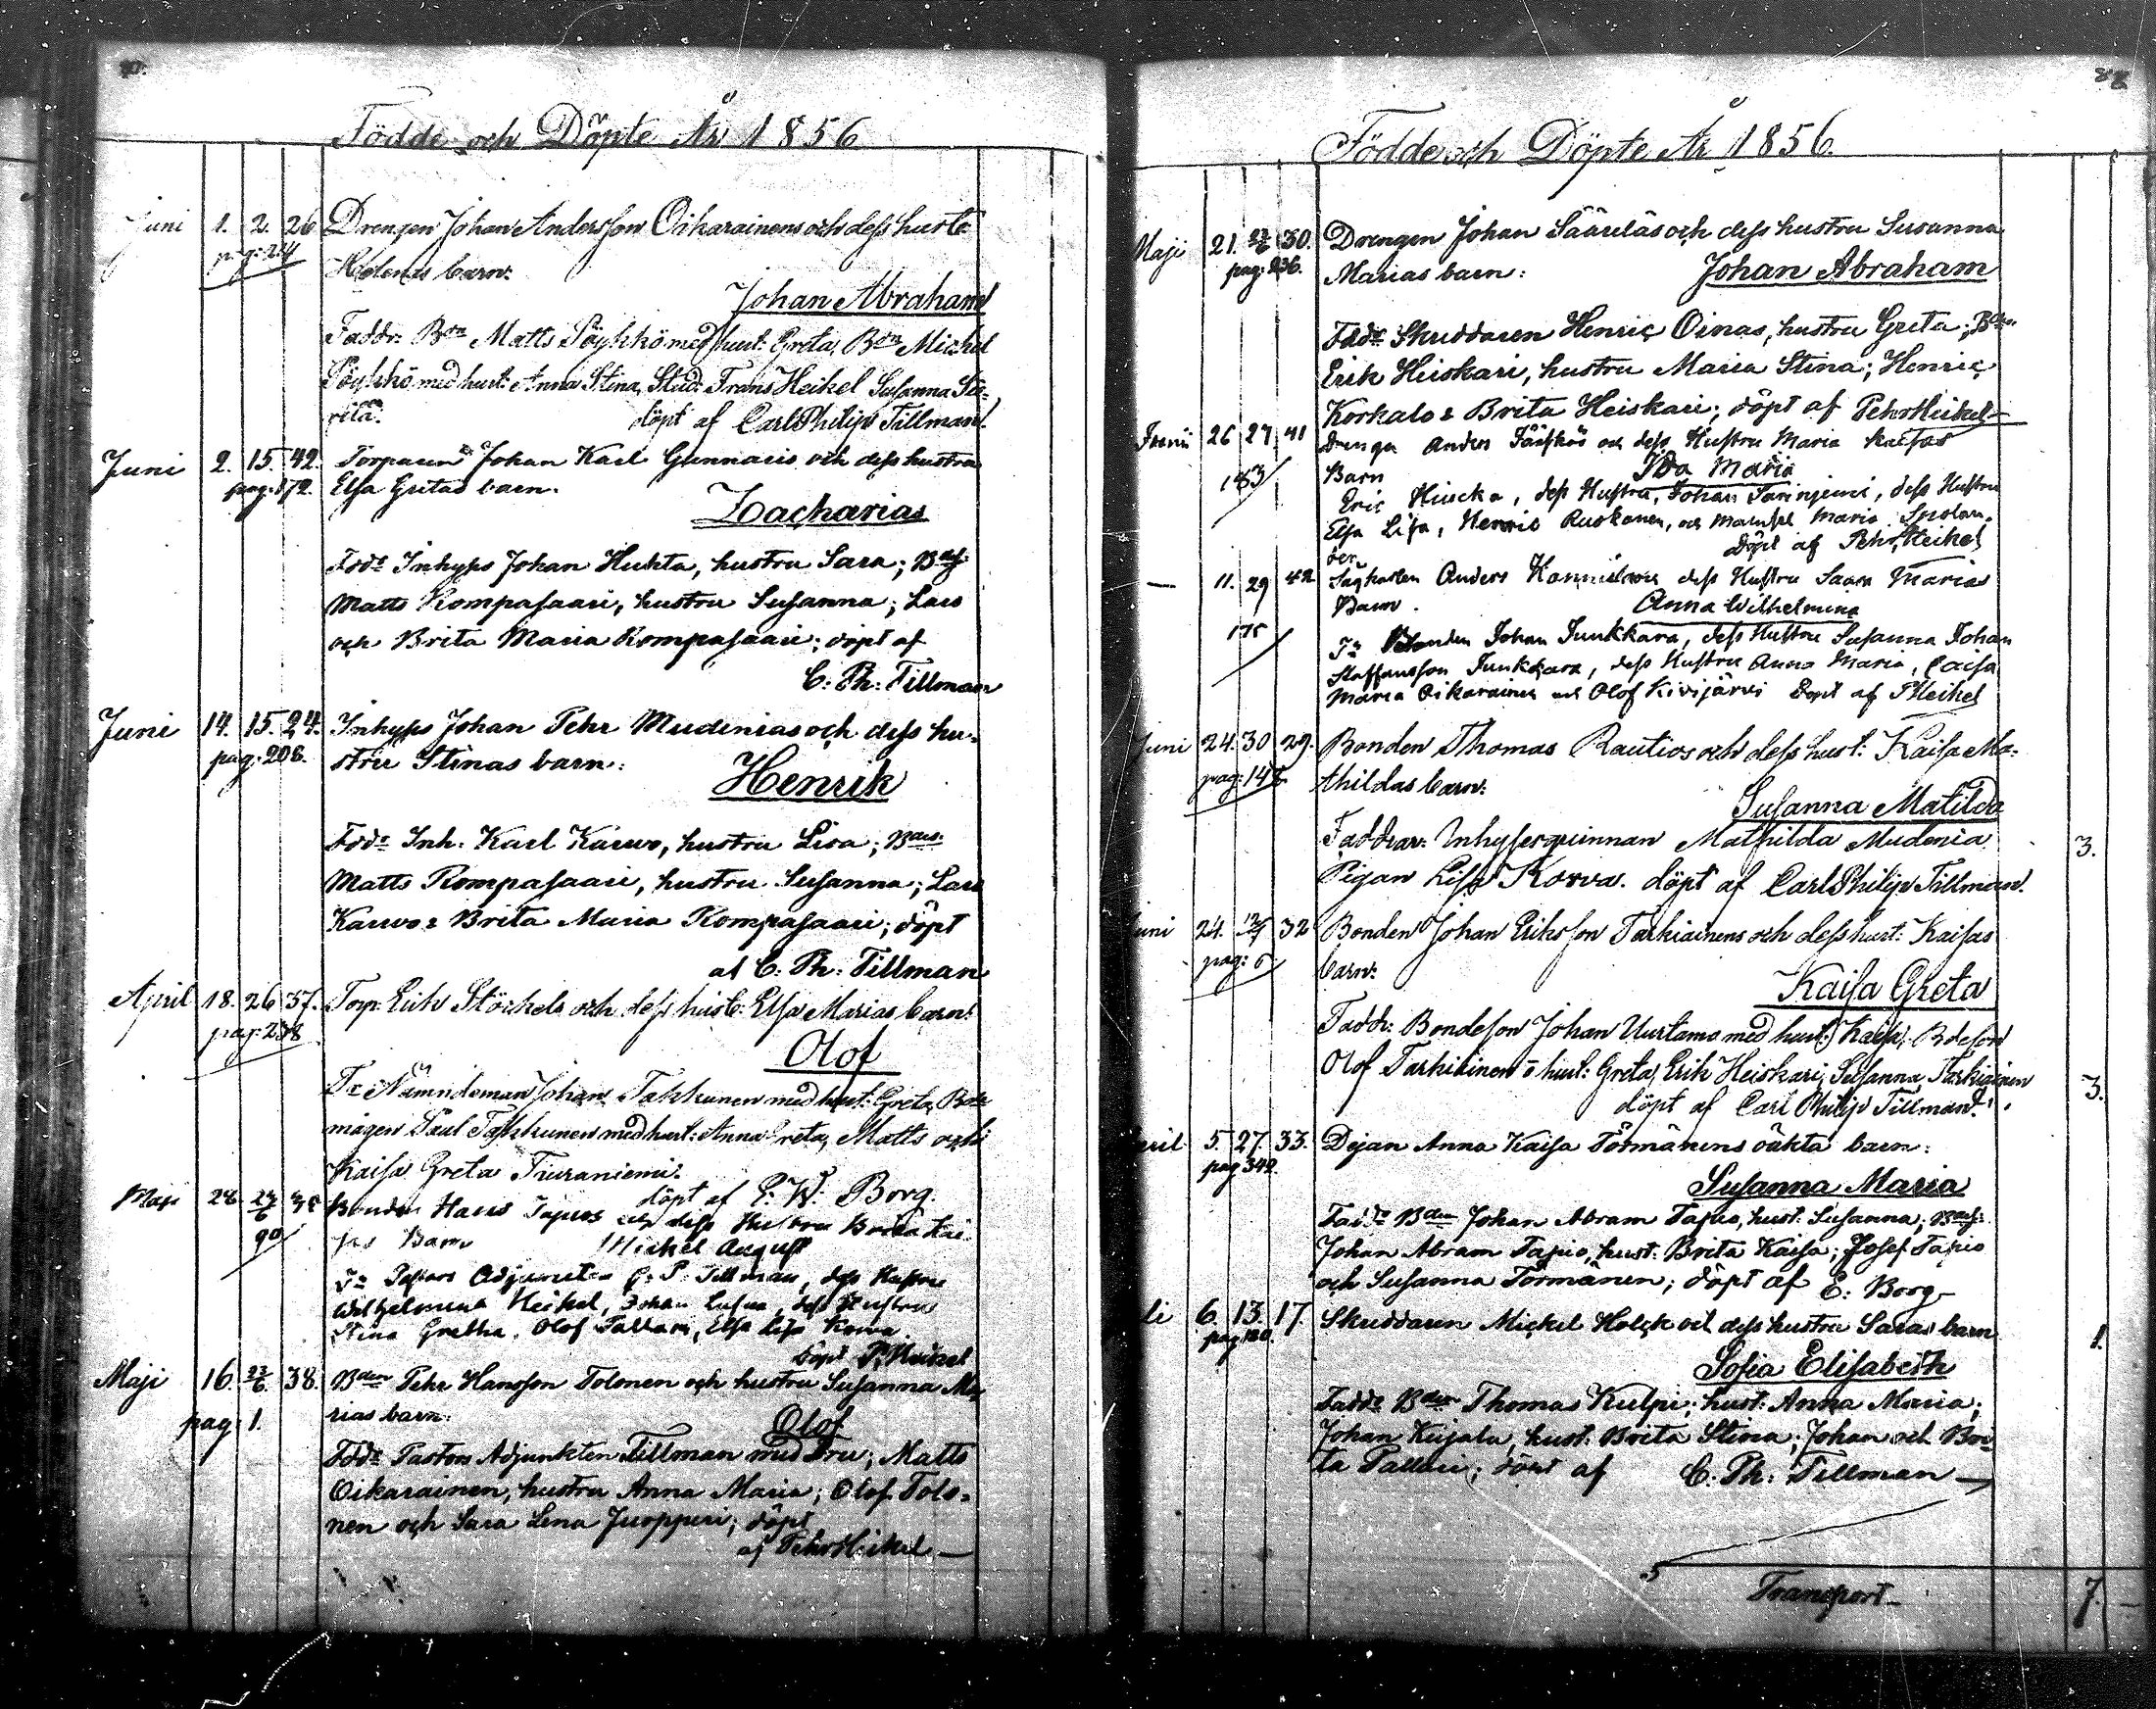 Födde och Döpte År 1856
Juni 1. 2. 26 Drengen Johan Andersson Oikarainens och dess hust:
pag: 214 Helenas barn:
Johan Abraham
Faddr: Bdn Matts Pöykkö med hust: Greta, Bdn Michel
Pöykkö med hust: Anna Stina, Stud: Frans Heikel Susanna
döpt af Carl Philip Tillman.
Juni 2. 15. 42. Torparen Johan Karl Gunnaris och dess hustru
pag: 172. Elsa Gretas barn.
Zacharias
Fddr Inhyss Johan Huhta, hustru Sara;
Matts Kompasaari, hustru Susanna; Lars
och Brita Maria Kompasaari; döpt af
C: Ph: Tillman
Juni 14. 15. 24. Inhyss Johan Pehr Mudenias och dess hu-
pag: 206. stru Stinas barn:
Henrik
Fddr Inh. Karl Karwo, hustru Lisa;
Matts Kompasaari, hustru Susanna; Lars
Karwo & Brita Maria Kompasaari; döpt
af C: Ph: Tillman
April 18. 26 37. Torp: Erik Stöckels och dess hust: Elsa Marias barn:
Olof
Fr Nämndeman Johan Takkunen med hust: Greta,
mågen Paul Takkunen med hust: Anna Greta, Matts och
Kaisa Greta Tiuraniemi.
döpt af E. W. Borg.
Maji 28 27/6 Bonden Hans Tapios och dess Hustru Brita Kai-
90 sas Barn Mickel August
Fr Pastors Adjuncten C. P. Tillman, dess Hustru
Wilhelmina Heikel, Johan dess Hustru
Stina Gretha, Olof Pallari, Elsa Lisa Korva
Döpt P. Heikel
Maji 16. 23/6. 38. Bden Pehr Hansson Tolonen och hustru Susanna Ma-
pag: 1. rias barn:
Olof
Fddr Pastors Adjunkten Tillman med Fru; Matts
Oikarainen, hustru Anna Maria; Olof Tolo-
nen och Sara Lena Juoppuri; döpt
af Pehr Heikel
Födde och Döpte År 1856.
Maji 21. 30. Drengen Johan Säärelas och dess hustru Susanna
pag: 236. Marias barn: Johan Abraham
Fddr Skuddaren Henric Oinas, hustru Greta;
Erik Heiskari, hustru Maria Stina; Henric
Korkalo & Brita Heiskari; döpt af Pehr Heikel
Junii 26 27 41 Drengen Anders Jääskös och dess Hustru Maria Kaisas
183 Barn Ida Maria
Eric Hiucka, dess Hustru, Johan Tarinjemi, dess Hustru
Elsa Lisa, Henric Ruokanen, och Mamsel Maria Spolan-
der. Döpt af Pehr Heikel
— 11. 29 42 Anders dess Hustru Saara Marias
Barn. Anna Wilhelmina
175 Fr Bonden Johan Junkkara, dess Hustru Susanna Johan
Staffansson Junkkara, dess Hustru Anna Maria, Caisa
Maria Oikarainen och Olof Kivijärvi Döpt af P Heikel
Juni 24. 30 29. Bonden Thomas Rautios och dess hust: Kaisa Ma-
thildas barn:
Susanna Matilda
Faddrar: Inhysesqvinnan Mathilda Mudenia 3.
Pigan Lisa Korva. döpt af Carl Philip Tillman.
24. 32 Bonden Johan Eriksson Tarkiainens och dess hust: Kaisas
barn:
Kaisa Greta
Faddr: Bondeson Johan Uurtamo med hust: Kaisa, Bdeson
Olof Tarkiainen o hust: Greta, Erik Heiskari, Susanna Tarkiainen
döpt af Carl Philip Tillman. 3.
5. 27. 33. Pigan Anna Kaisa Törmänens oäkta barn:
pag 342. Susanna Maria
Faddr Bden Johan Abram Tapio, hust: Susanna;
Johan Abram Tapio, hust: Brita Kaisa; Josef Tapio
och Susanna Törmänen; döpt af E. Borg
6. 13. 17. Skuddaren Mickel Holck och dess hustru Saras barn
pag 180. 1.
Sofia Elisabeth
Faddr Bden Thomas Kulpi, hust: Anna Maria;
Johan Kujala, hust: Brita Stina; Johan och Bri-
ta Pallari; döpt af C: Ph: Tillman
Transport 7.